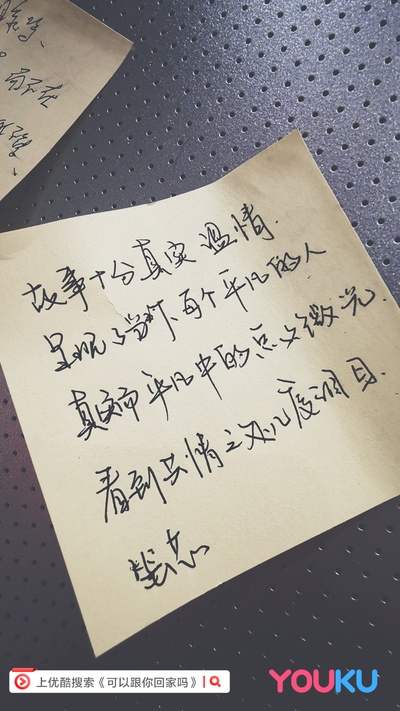 故事十分真实 温情.
呈现了当下每个平凡的人
真实而平凡中的点点微光.
看到共情之处几度泪目.
上优酷搜索《可以跟你回家吗》
YOUKU